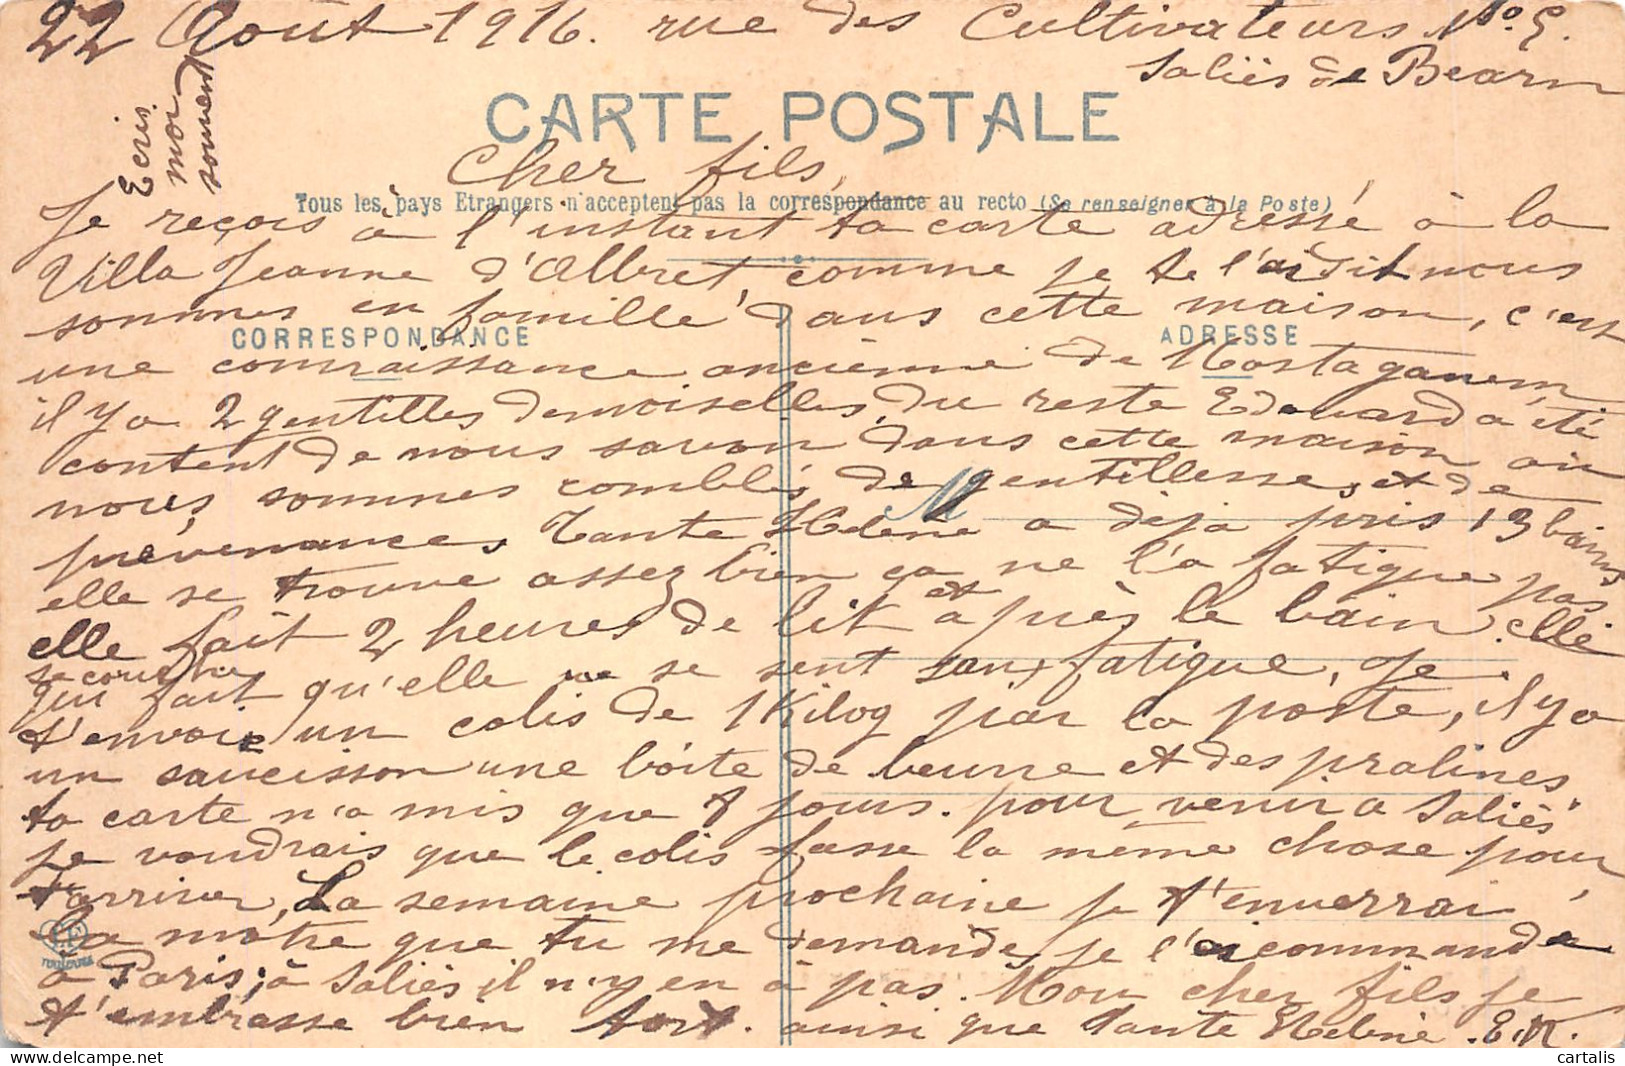 22 Août 1916. rue des Cultivateurs No 5.
Saliès de Bearn
Ecris
moi
souvent
CARTE POSTALE
Cher fils,
Tous les pays Etrangers n'acceptent pas la correspondance au recto (Se renseigner à la Poste)
Je reçois à l'instant ta carte adressé à la
Villa Jeanne d'Albret, comme je te l'ai dit nous
sommes en famille dans cette maison, c'est
CORRESPONDANCE
ADRESSE
une connaissance ancienne de Mostaganem
il y a 2 gentilles demoiselles, du reste Edouard a été
content de nous savoir dans cette maison où
nous sommes comblés de gentillesses et de
M
prévenances, Tante Helène a déja pris 13 bains
elle se trouve assez bien ça ne l'a fatigue pas
elle fait 2 heures de lit et après le bain. elle
se couche
qui fait qu'elle ne se sent sans fatigue, Je
t'envoie un colis de 1 Kilog par la poste, il y a
un saucisson une boite de beurre et des pralines.
ta carte n'a mis que 8 jours. pour venir a Saliès
je voudrais que le colis fasse la même chose pour
t'arriver, La semaine prochaine je t'enverrai
la montre que tu me demande, je l'ai commandé
TOULOUSE
à Paris; à Saliès il n'y en à pas. Mon cher fils je
t'embrasse bien fort. ainsi que tante Helène. E.R.
cartalis